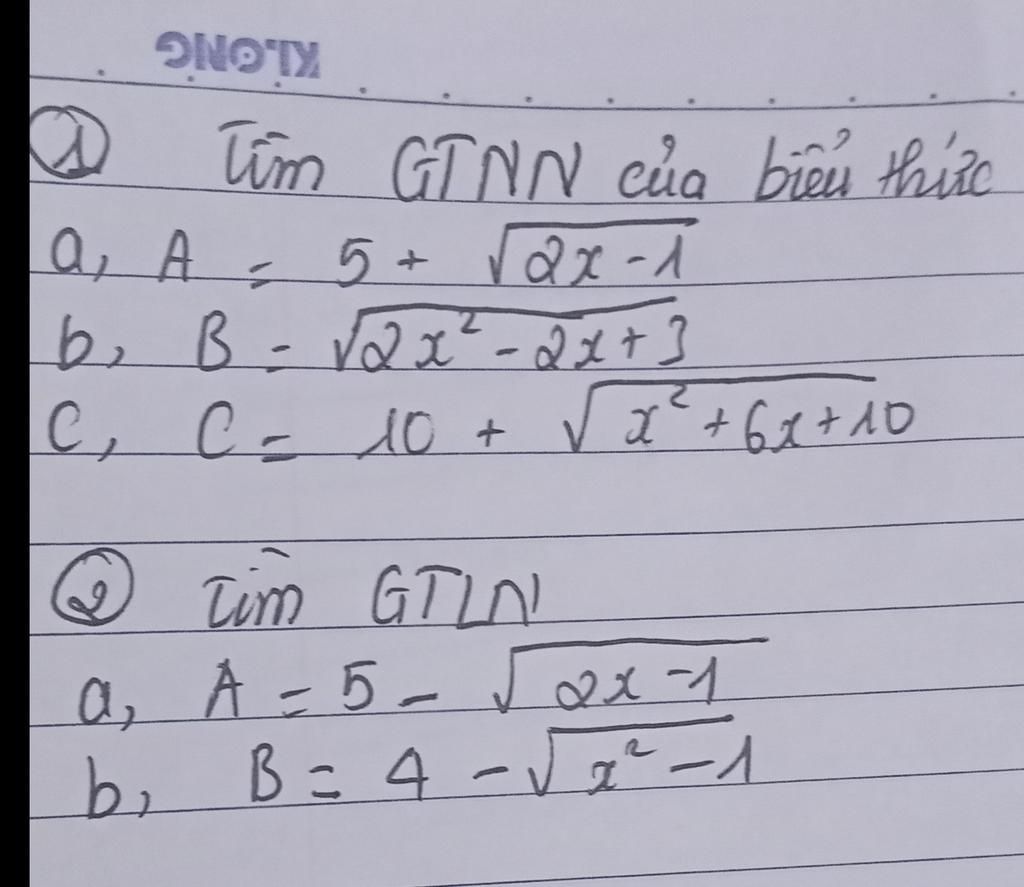 KLONG
① Tìm GTNN của biểu thức
a, A = 5 + √(2x - 1)
b, B = √(2x² - 2x + 3)
c, C = 10 + √(x² + 6x + 10)
② Tìm GTLN
a, A = 5 - √(2x - 1)
b, B = 4 - √(x² - 1)